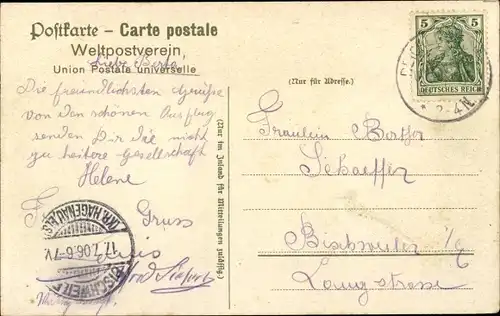 Postkarte – Carte postale
Weltpostverein
Union Postale universelle
Liebe Berta,
Die freundlichsten Grüsse
von den schönen Ausflug
senden Dir die nicht
zu heitere Gesellschaft
Helene
Gruss
(Nur im Inland für Mitteilungen zulässig)
(Nur für Adresse.)
5 5
DEUTSCHES REICH
2-4N
Fräulein Bertha
Schaeffer
Bischweiler i/E
Langstrasse
BISCHWEILER
17.7.06.6-7V.
(KR. HAGENAU ELS.)